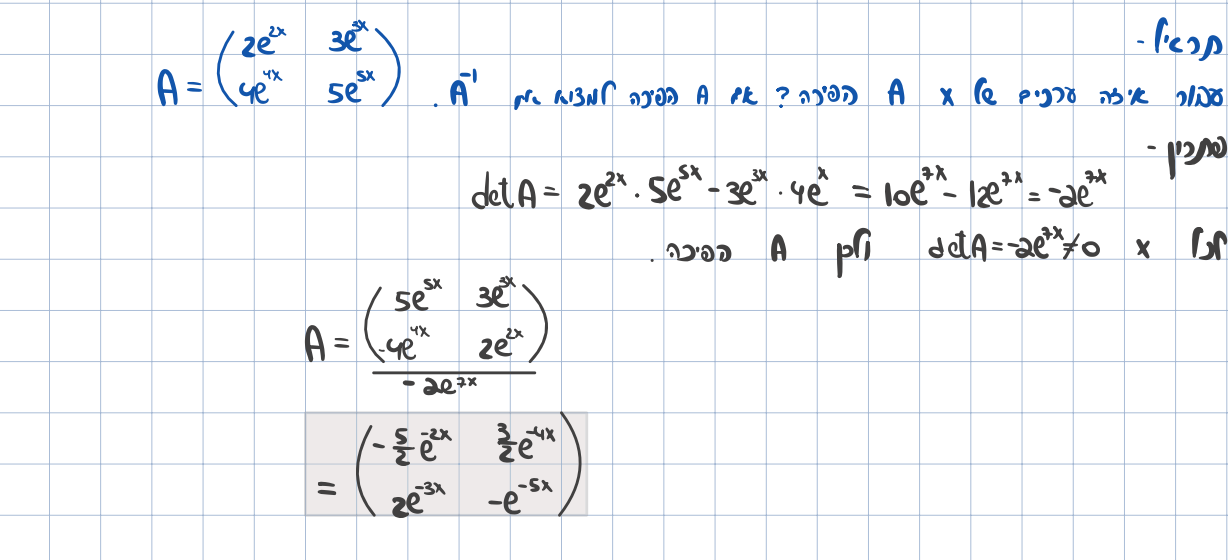 תרגיל -
A = (2e^{2x} 3e^{3x}
4e^{4x} 5e^{5x})
עבור איזה ערכים של x A הפיכה? אם A הפיכה למצוא את A^{-1}.
פתרון -
det A = 2e^{2x} · 5e^{5x} - 3e^{3x} · 4e^{x} = 10e^{7x} - 12e^{7x} = -2e^{7x}
לכל x det A = -2e^{7x} ≠ 0 ולכן A הפיכה.
A = (5e^{5x} 3e^{3x}
-4e^{4x} 2e^{2x})
-2e^{7x}
= (-5/2 e^{-2x} 3/2 e^{-4x}
2e^{-3x} -e^{-5x})